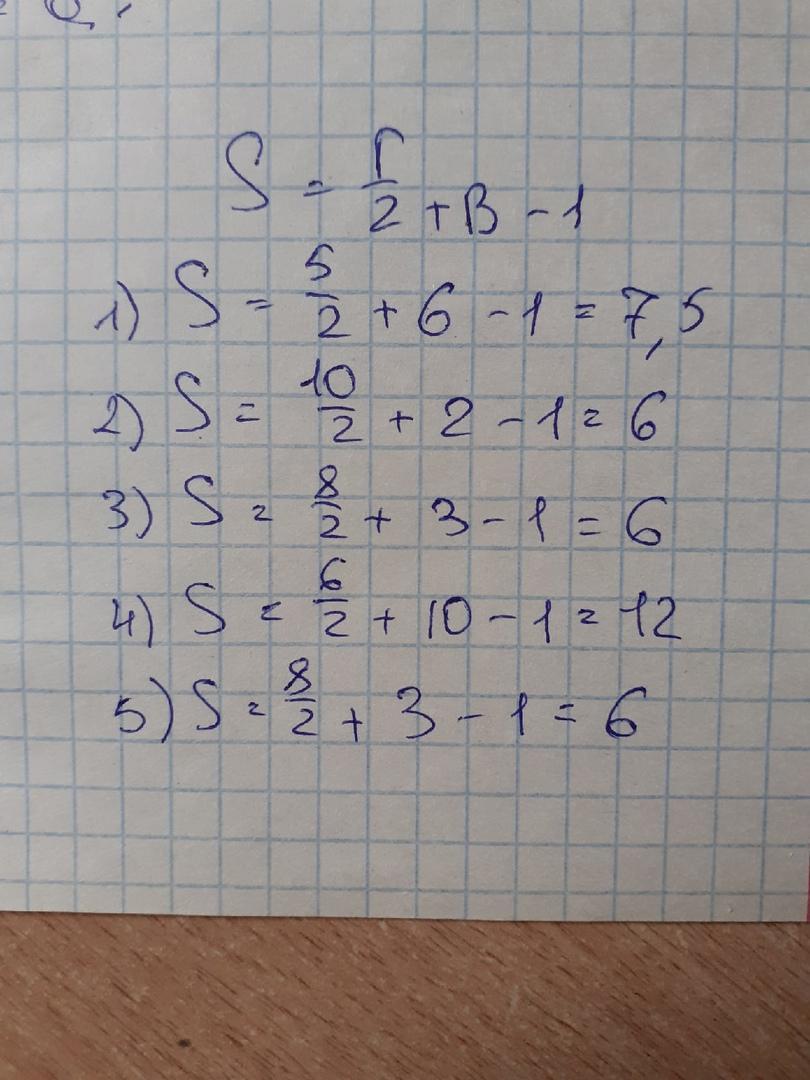 S = Г/2 + В - 1
1) S = 5/2 + 6 - 1 = 7,5
2) S = 10/2 + 2 - 1 = 6
3) S = 8/2 + 3 - 1 = 6
4) S = 6/2 + 10 - 1 = 12
5) S = 8/2 + 3 - 1 = 6